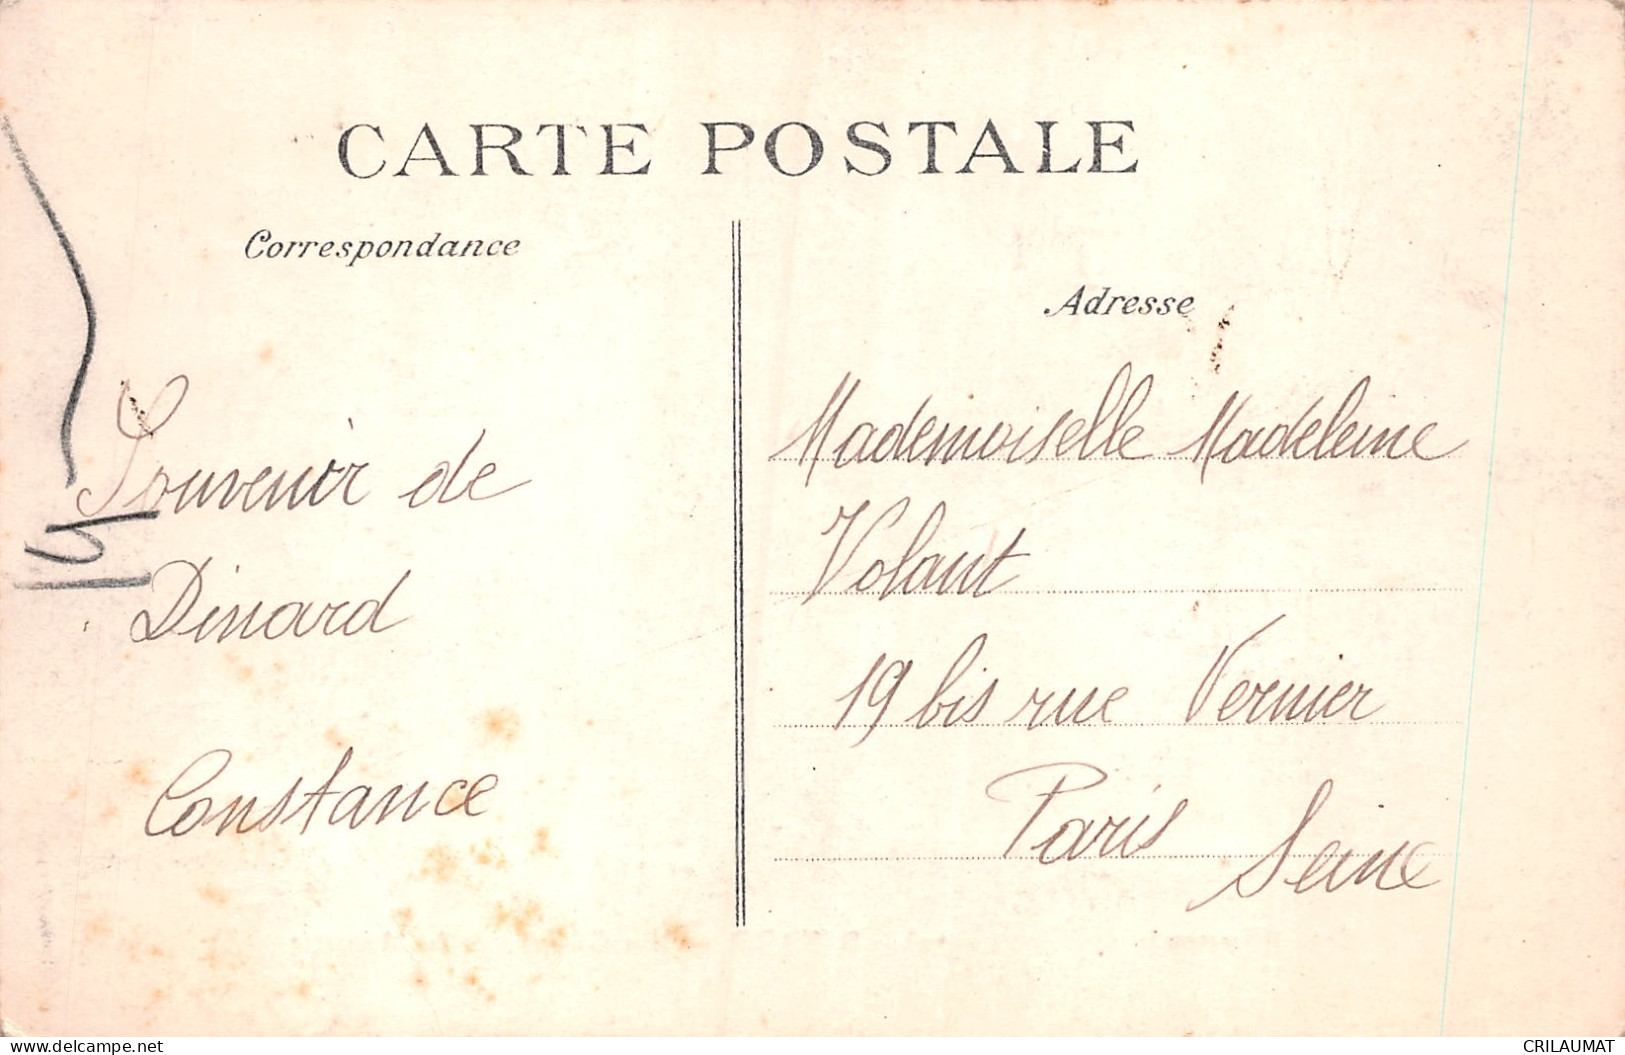 CARTE POSTALE
Correspondance
Souvenir de
Dinard
Constance
Adresse
Mademoiselle Madeleine
Volant
19 bis rue Vernier
Paris Seine
www.delcampe.net
CRILAUMAT